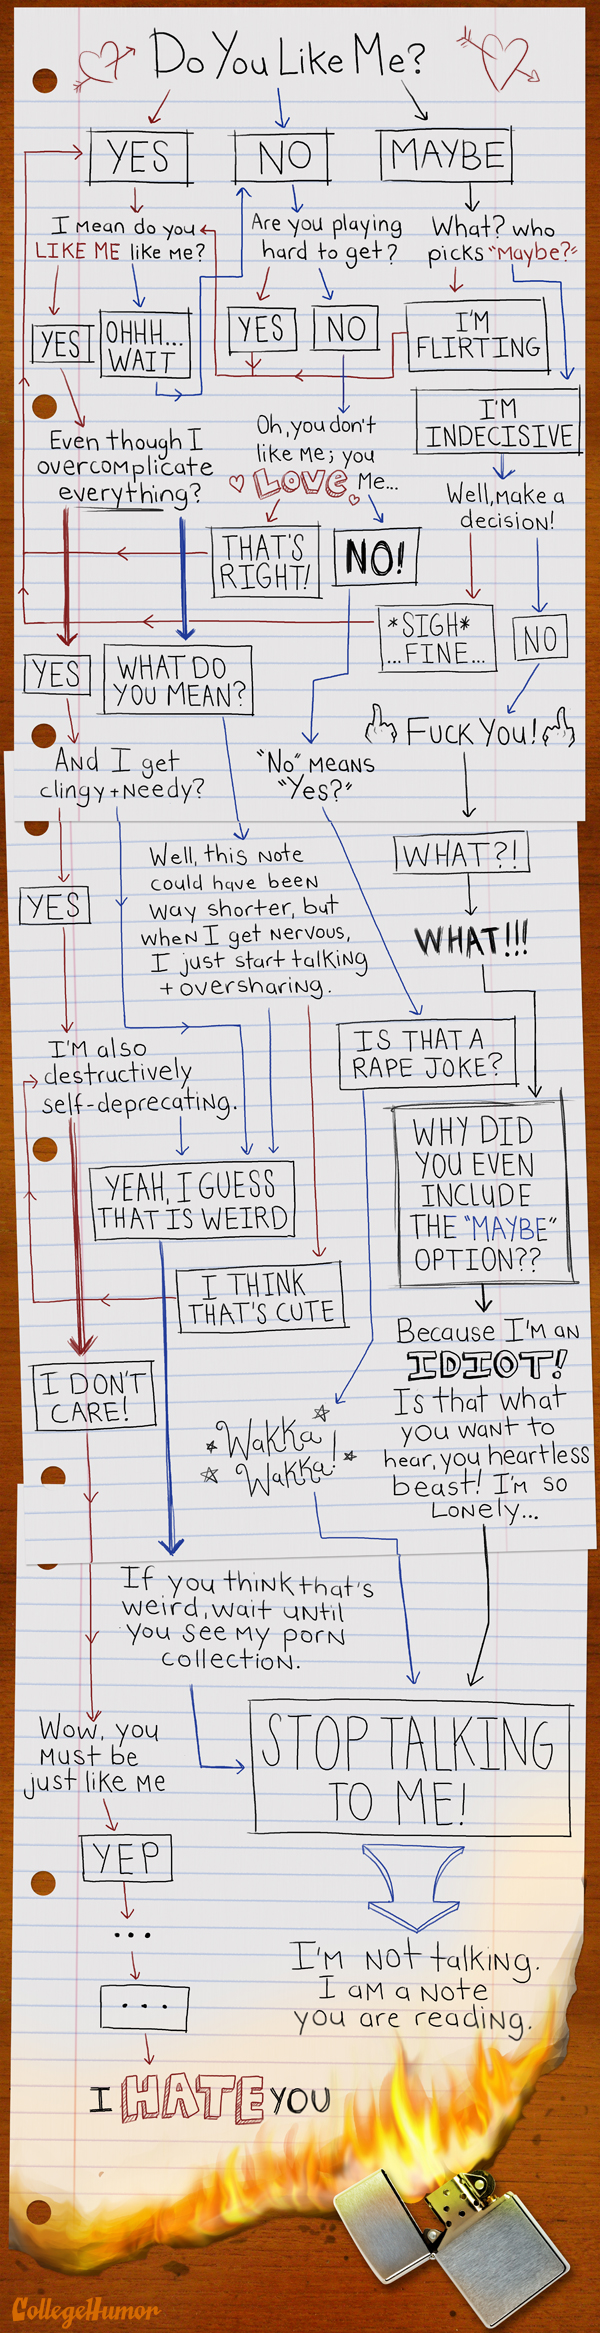 Do You Like Me?
YES
NO
MAYBE
I mean do you
LIKE ME like me?
Are you playing
hard to get?
What? who
picks "Maybe?"
YES
OHHH...
WAIT
YES
NO
I'M
FLIRTING
I'M
INDECISIVE
Even though I
overcomplicate
everything?
Oh, you don't
like me; you
LOVE me...
Well, make a
decision!
THAT'S
RIGHT!
NO!
*SIGH*
...FINE...
NO
YES
WHAT DO
YOU MEAN?
Fuck You!
And I get
clingy + needy?
"No" means
"Yes?"
WHAT?!
YES
Well, this note
could have been
way shorter, but
when I get nervous,
I just start talking
+ oversharing.
WHAT!!!
IS THAT A
RAPE JOKE?
I'm also
destructively
self-deprecating.
WHY DID
YOU EVEN
INCLUDE
THE "MAYBE"
OPTION??
YEAH, I GUESS
THAT IS WEIRD
I THINK
THAT'S CUTE
Because I'm an
IDIOT!
Is that what
you want to
hear, you heartless
beast! I'm so
lonely...
I DON'T
CARE!
Wakka
Wakka!
If you think that's
weird, wait until
you see my porn
collection.
STOP TALKING
TO ME!
Wow, you
must be
just like me
YEP
...
...
I'm not talking.
I am a note
you are reading.
I HATE YOU
CollegeHumor